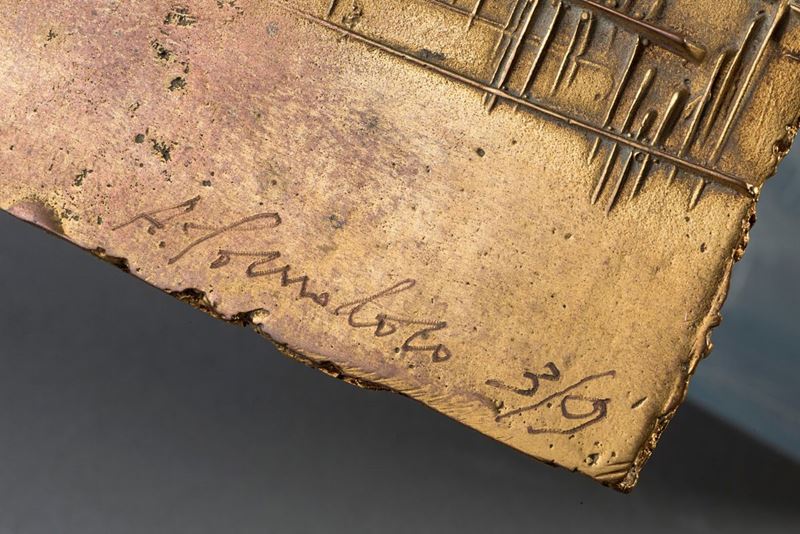 A Pomodoro 3/9